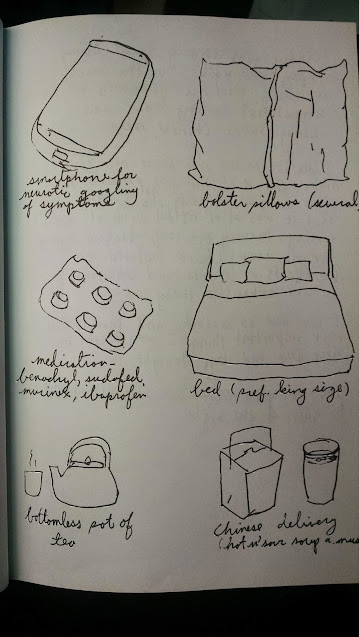 smartphone for
neurotic googling
of symptoms
bolster pillows (several
medication-
benadryl, sudafed,
mucinex, ibuprofen
bed (pref. king size)
bottomless pot of
tea
chinese delivery
(hot n' sour soup a mus